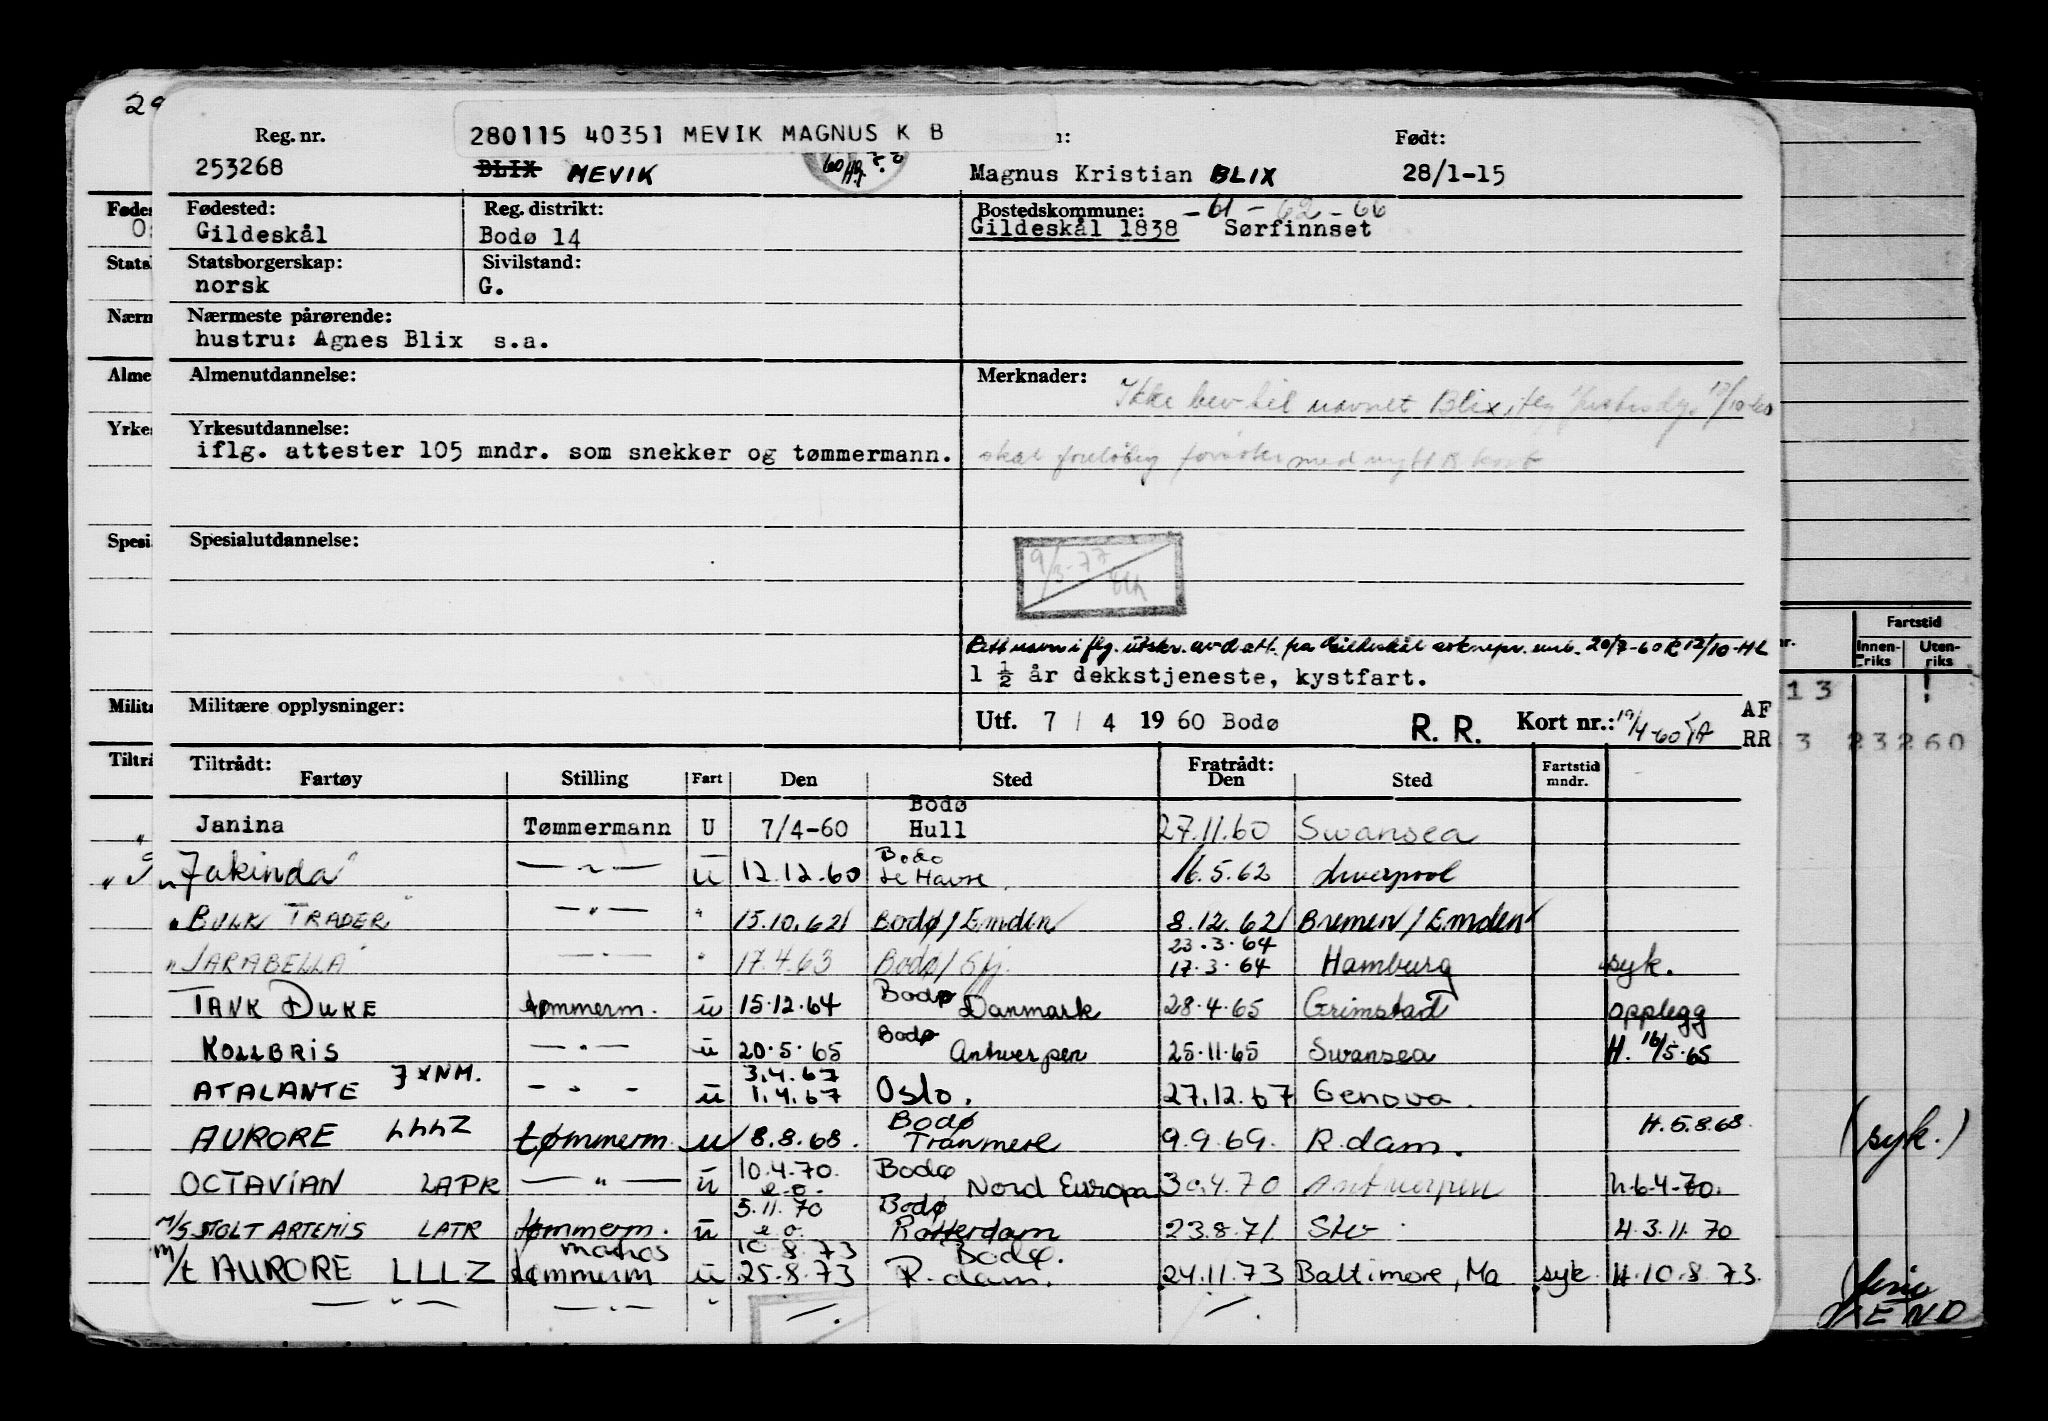 29
Reg. nr. 280115 40351 MEVIK MAGNUS K B Født:
253268 BLIX MEVIK Magnus Kristian BLIX 28/1-15
Fødested: Reg. distrikt: Bostedskommune: -61-62-66
Gildeskål Bodø 14 Gildeskål 1838 Sørfinnset
Statsborgerskap: Sivilstand:
norsk G.
Nærmeste pårørende:
hustru: Agnes Blix s.a.
Almenutdannelse: Merknader:
Ikke bev til navnet Blix,
Yrkesutdannelse:
iflg. attester 105 mndr. som snekker og tømmermann.
skal foreløbig
Spesialutdannelse:
9/3-77
20/7-60 12/10-HL
1 ½ år dekkstjeneste, kystfart.
Militære opplysninger: Utf. 7 / 4 19 60 Bodø R. R. Kort nr.: 19/4-60 AF
RR
Fartstid
Innen-riks Uten-riks
13
3 23260
Tiltrådt: Fratrådt: Fartstid
Fartøy Stilling Fart Den Sted Den Sted mndr.
Bodø
Janina Tømmermann U 7/4-60 Hull 27.11.60 Swansea
"Jakinda" — " — u 12.12.60 Bodø Le Havre 16.5.62 Liverpool
"BULK TRADER" — " — " 15.10.62 Bodø/Emden 8.12.62 Bremen/Emden
23.3.64
"JARABELLA" — " — " 17.4.63 Bodø/Gfj. 17.3.64 Hamburg syk.
TANK DUKE tømmerm. u 15.12.64 Bodø Danmark 28.4.65 Grimstad opplegg
KOLLBRIS — " — u 20.5.65 Bodø Antwerpen 25.11.65 Swansea H. 16/5.65
3.4.67
ATALANTE JXNM. — " — u 1.4.67 Oslo. 27.12.67 Genova.
AURORE LLLZ tømmerm. u 8.8.68. Bodø Tranmere 9.9.69. R.dam. H.5.8.68.
(syk.)
OCTAVIAN LAPR — " — u 10.4.70. e.o. Bodø Nord Europa 30.4.70 Antwerpen H.6.4.70.
M/S STOLT ARTEMIS LATR tømmerm. u 5.11.70 e.o. Bodø Rotterdam 23.8.71 Stv. H.3.11.70
matros 10.8.73 Bodø.
M/t AURORE LLLZ tømmerm u 25.8.73 R.dam. 24.11.73 Baltimore, Ma syk. H.10.8.73.
— " — — " — " —/. —/.